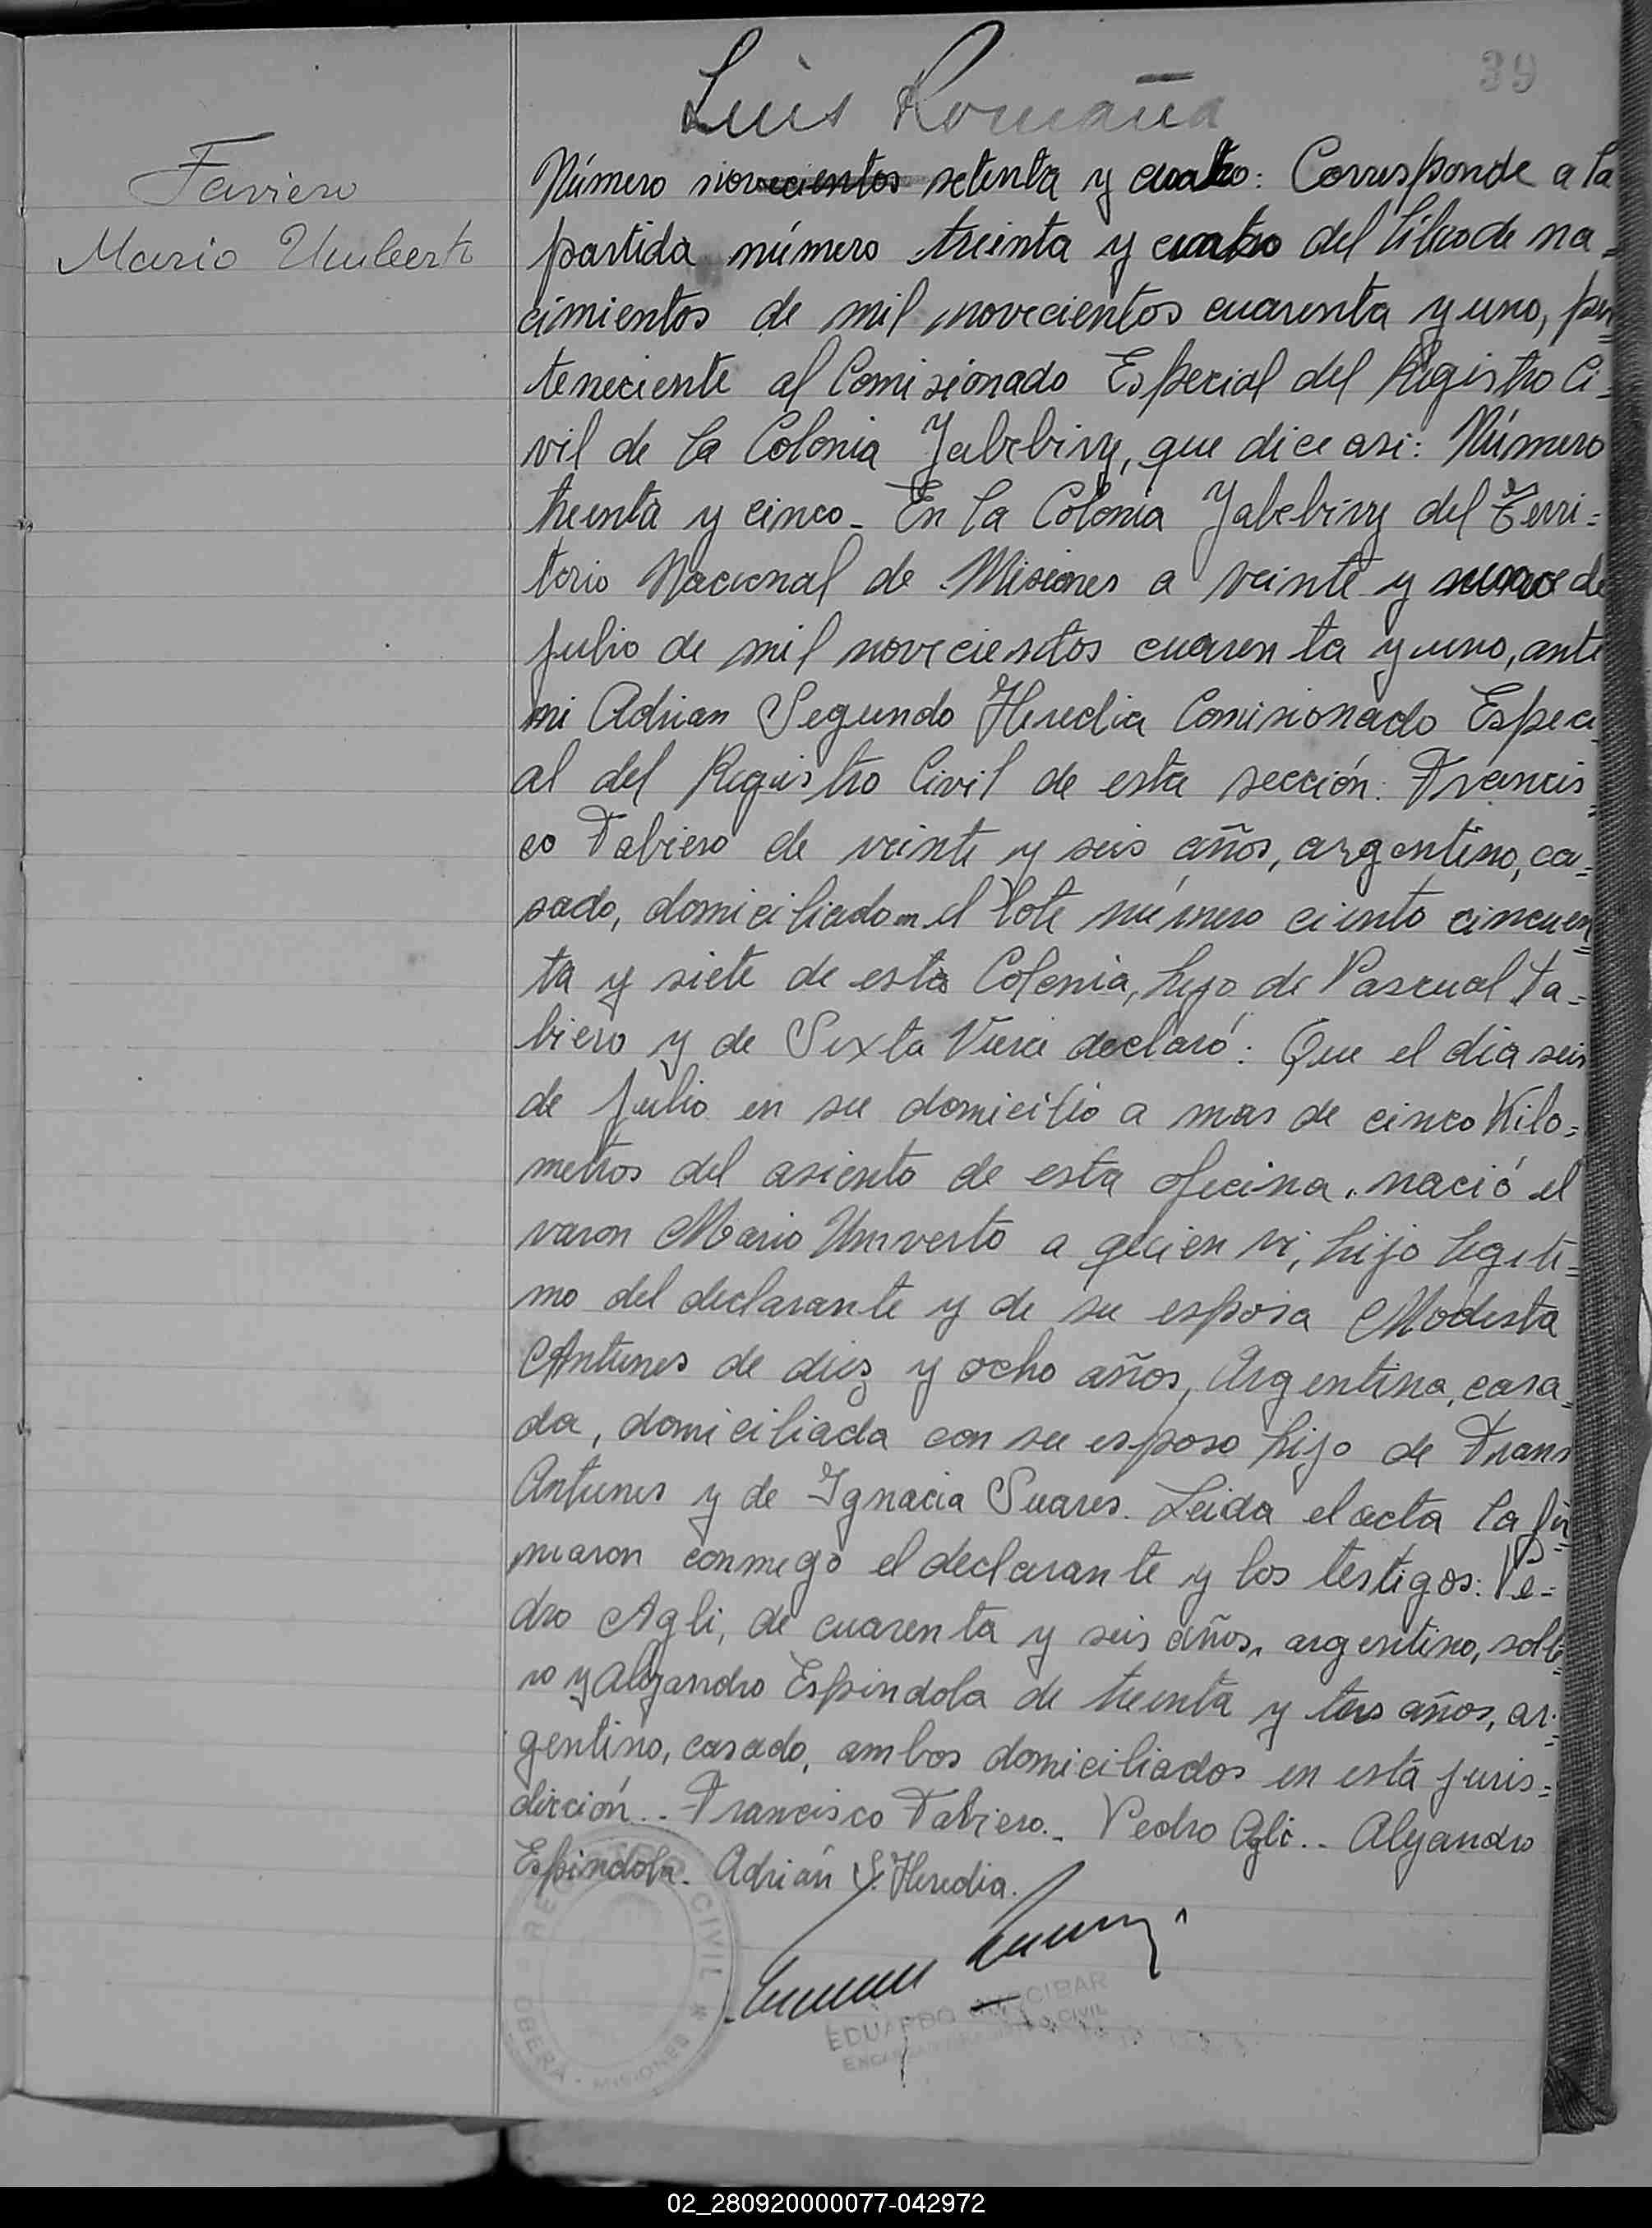 39
Luis Romaña
Faviero
Mario Umberto
Número novecientos setenta y cuatro: Corresponde a la
partida número treinta y cuatro del libro de na=
cimientos de mil novecientos cuarenta y uno, per=
teneciente al Comisionado Especial del Registro Ci=
vil de la Colonia Yabebiry, que dice asi: Número
treinta y cinco - En la Colonia Yabebiry del Terri=
torio Nacional de Misiones a veinte y nueve de
julio de mil novecientos cuarenta y uno, ante
mi Adrian Segundo Heredia Comisionado Especi
al del Registro Civil de esta sección: Francis=
co Fabiero de veinte y seis años, argentino, ca=
sado, domiciliado en el lote número ciento cincuen=
ta y siete de esta Colonia, hijo de Pascual Fa=
biero y de Sixta declaró: Que el dia seis
de julio en su domicilio a mas de cinco Kilo=
metros del asiento de esta oficina, nació el
varon Mario Umverto a quien vi, hijo legiti=
mo del declarante y de su esposa Modesta
Antunes de diez y ocho años, Argentina, casa=
da, domiciliada con su esposo hijo de Frans
Antunes y de Ignacia Suares. Leida el acta la fir=
maron conmigo el declarante y los testigos: Pe=
dro Agli, de cuarenta y seis años, argentino, solte=
ro y Alejandro Espindola de treinta y tres años, ar=
gentino, casado, ambos domiciliados en esta juris=
dicción.- Francisco Fabiero.- Pedro Agli.- Alejandro
Espindola. Adrián S. Heredia.
REGISTRO CIVIL
OBERÁ - MISIONES
EDUARDO
CIVIL
02_280920000077-042972